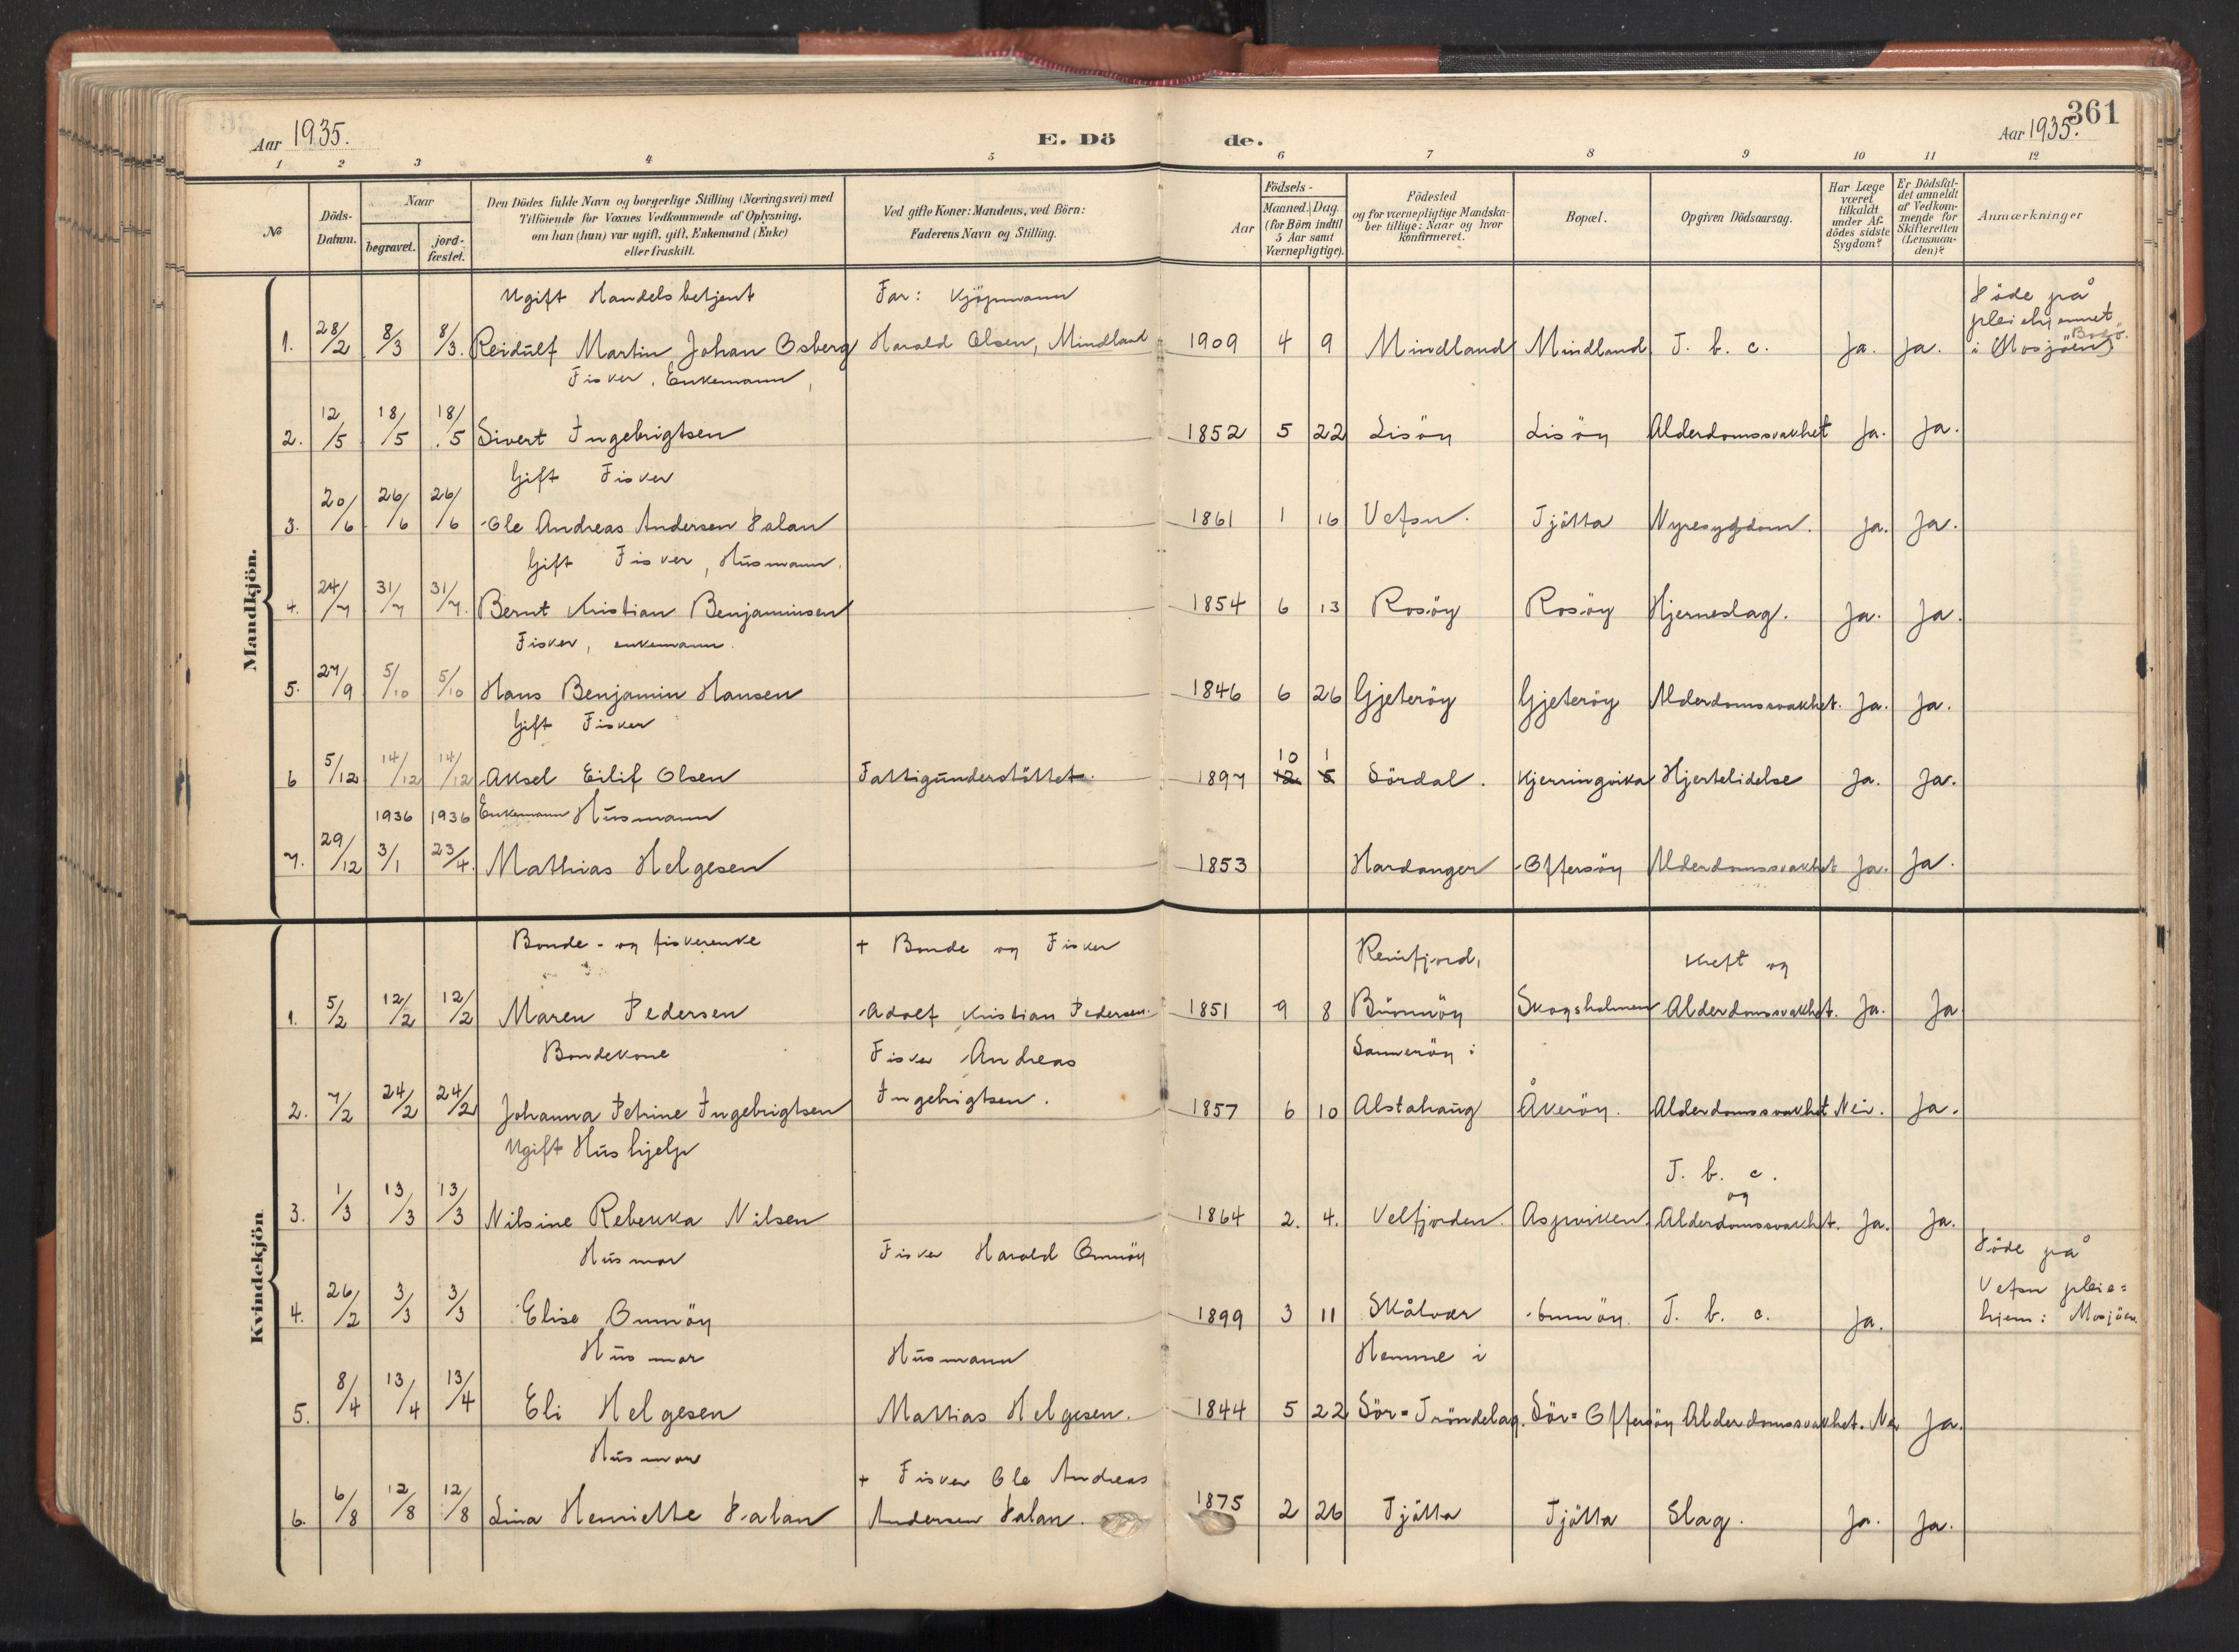 361
Aar 1935.
E. Dö
de.
Aar 1935.
1 2 3 4 5 6 7 8 9 10 11 12
No
Döds-
Datum.
Naar
begravet.
jord-
fæstet.
Den Dödes fulde Navn og borgerlige Stilling (Næringsvei) med
Tilföiende for Voxnes Vedkommende af Oplysning,
om han (hun) var ugift, gift, Enkemand (Enke)
eller fraskilt.
Ved gifte Koner: Mandens, ved Börn:
Faderens Navn og Stilling.
Födsels-
Aar
Maaned. Dag.
(for Börn indtil
5 Aar samt
Værnepligtige).
Födested
og for værnepligtige Mandska-
ber tillige: Naar og hvor
konfirmeret.
Bopæl.
Opgiven Dödsaarsag.
Har Læge
været
tilkaldt
under Af-
dödes sidste
Sygdom?
Er Dödsfal-
det anmeldt
af Vedkom-
mende for
Skifteretten
(Lensman-
den)?
Anmærkninger
Mandkjön.
Ugift Handelsbetjent Far: Kjöpmann Döde på
pleiehjemmet
1. 28/2 8/3 8/3. Reidulf Martin Johan Osberg Harald Olsen, Mindland 1909 4 9 Mindland Mindland T. b. c. Ja. Ja. i (Mosjöen)
Fisker, Enkemann,
2. 12/5 18/5 18/5 Sivert Ingebrigtsen 1852 5 22 Lisöy Lisöy Alderdomssvakhet Ja. Ja.
Gift Fisker
3. 20/6 26/6 26/6 Ole Andreas Andersen Dalan 1861 1 16 Vefsn. Tjötta Nyresygdom. Ja. Ja.
Gift Fisker, Husmann.
4. 24/7 31/7 31/7. Bernt Kristian Benjaminsen 1854 6 13 Rosöy Rosöy Hjerneslag. Ja. Ja.
Fisker, enkemann.
5. 27/9 5/10 5/10 Hans Benjamin Hansen 1846 6 26 Gjeteröy Gjeteröy Alderdomssvakhet. Ja. Ja.
Gift Fisker
10 1
6 5/12 14/12 14/12 Aksel Eilif Olsen Fattigunderstöttet. 1897 12 5 Sördal. Kjerringvika Hjertelidelse Ja. Ja.
1936 1936 Enkemann Husmann
7. 29/12 3/1 23/4. Mathias Helgesen 1853 Hardanger Offersöy Alderdomssvakhet Ja. Ja.
Kvindekjön
Bonde- og fiskerenke + Bonde og Fisker Reinfjord, Kreft og
1. 5/2 12/2 12/2 Maren Pedersen Adolf Kristian Pedersen. 1851 9 8 Brönnöy Skogsholmen Alderdomssvakhet. Ja. Ja
Bondekone Fisker Andreas Sanneröy i
2. 7/2 24/2 24/2 Johanna Petrine Ingebrigtsen Ingebrigtsen. 1857 6 10 Alstahaug Åkeröy. Alderdomssvakhet Nei. Ja.
Ugift Hushjelp T. b. c.
og
3. 1/3 13/3 13/3 Nilsine Rebekka Nilsen 1864 2. 4. Velfjorden. Aspviken Alderdomssvakhet. Ja. Ja.
Husmor Fisker Harald Ommöy Döde på
Vefsn pleie=
4. 26/2 3/3 3/3 Elise Ommöy 1899 3 11 Skålvær Ommöy. T. b. c. Ja. hjem i Mosjöen.
Husmor Husmann Hemme i
5. 8/4 13/4 13/4 Eli Helgesen Mattias Helgesen. 1844 5 22 Sör=Tröndelag. Sör=Offersöy Alderdomssvakhet. Nei Ja.
Husmor + Fisker Ole Andreas
6. 6/8 12/8 12/8 Lina Henriette Dalan Andersen Dalan. 1875 2 26 Tjötta Tjötta Slag. Ja. Ja.